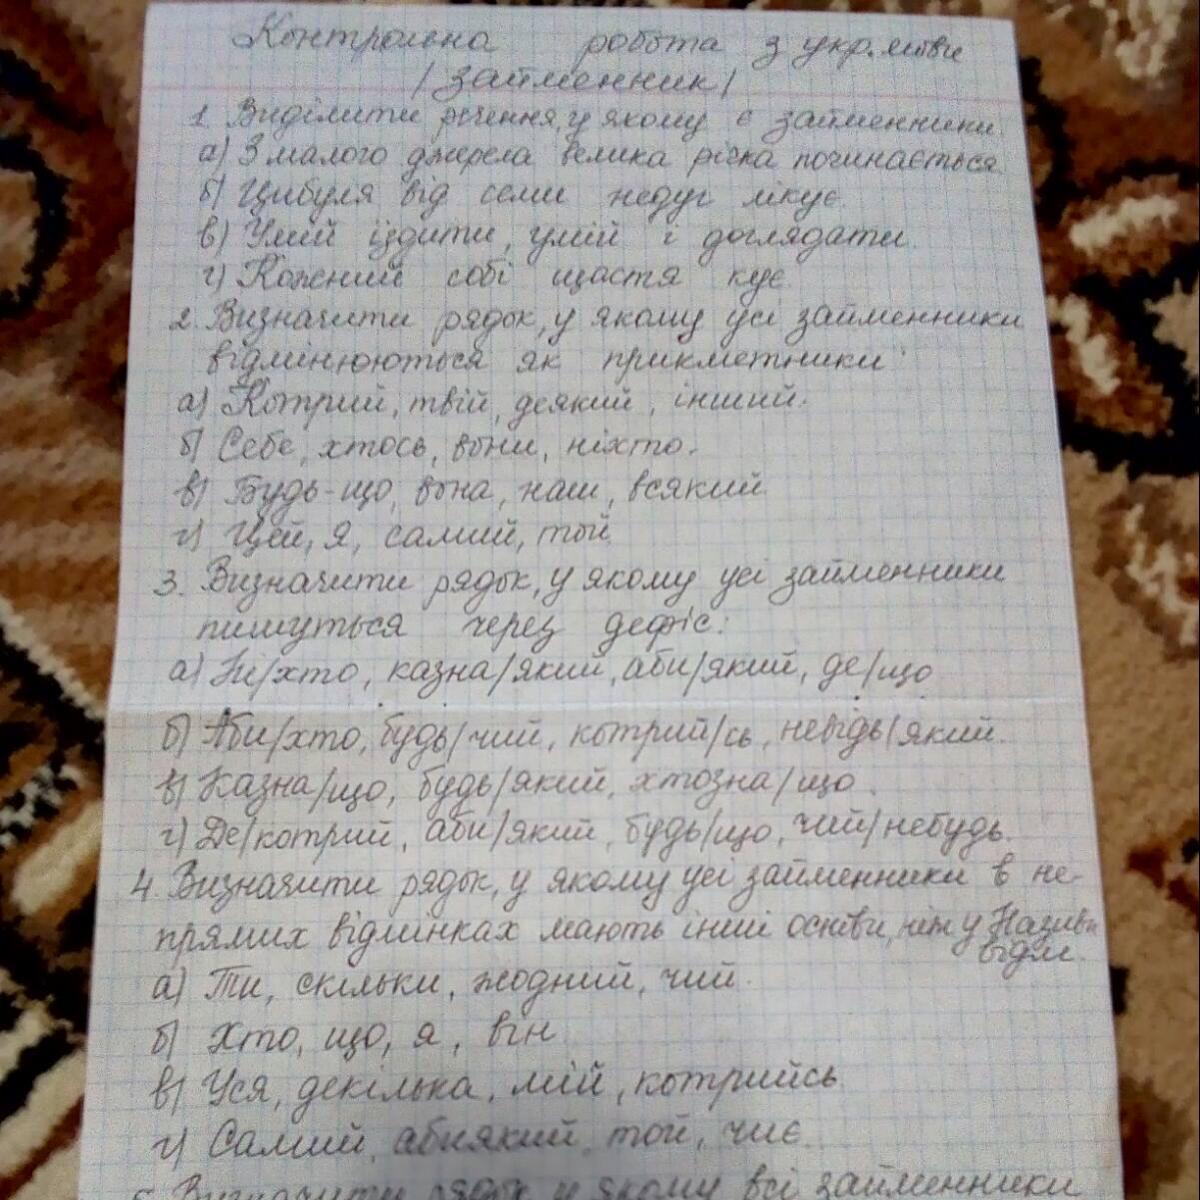 Контрольна робота з укр. мови
/Займенник/
1. Виділити речення, у якому є займенники.
а) З малого джерела велика річка починається.
б) Цибуля від семи недуг лікує.
в) Умій їздити, умій і доглядати.
г) Кожний собі щастя кує.
2. Визначити рядок, у якому усі займенники
відмінюються як прикметники:
а) Котрий, твій, деякий, інший.
б) Себе, хтось, вони, ніхто.
в) Будь-що, вона, наш, всякий.
г) Цей, я, самий, той.
3. Визначити рядок, у якому усі займенники
пишуться через дефіс:
а) Ні/хто, казна/який, аби/який, де/що
б) Аби/хто, будь/чий, котрий/сь, невідь/який.
в) Казна/що, будь/який, хтозна/що.
г) Де/котрий, аби/який, будь/що, чий/небудь.
4. Визначити рядок, у якому усі займенники в не-
прямих відмінках мають інші основи, ніж у Називн.
відм.
а) Ти, скільки, жодний, чий.
б) Хто, що, я, він
в) Уся, декілька, мій, котрийсь.
г) Самий, абиякий, той, чиє.
5. Визначити рядок, у якому всі займенники